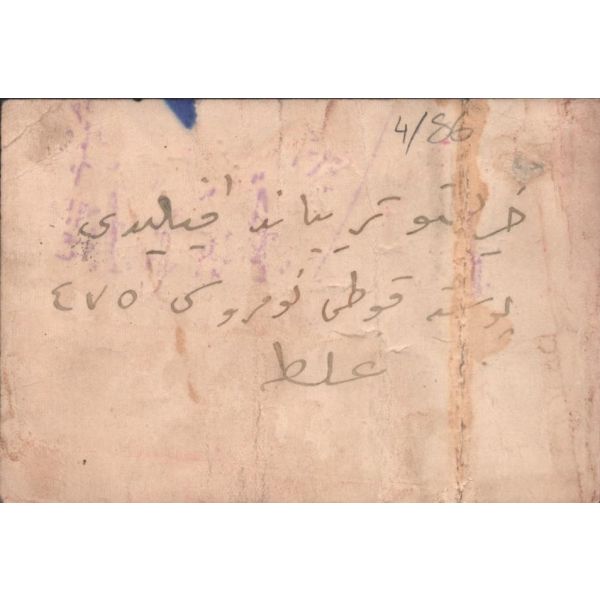 4/86
خريستو تريياندافيليدي
پوسته قوطی نومروسی ٤٧٥
غلطه